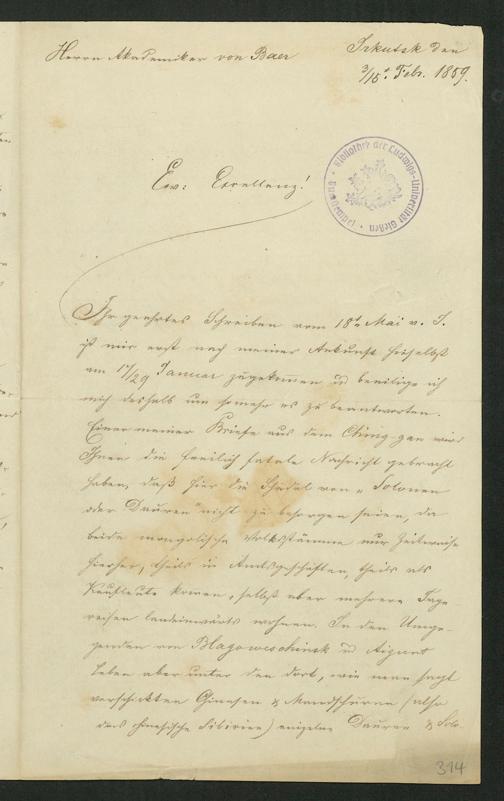 Herrn Akademiker von Baer
Irkutsk den
3/15t. Febr. 1859.
Bibliothek der Ludwigs-Universität Gießen
Ew: Excellenz!
Ihr geehrtes Schreiben vom 18t. Mai v. J.
ist mir erst nach meiner Ankunft hieselbst
am 17/29 Januar zugekommen u beeilige ich
mich deshalb um somehr es zu beantworten.
Einer meiner Briefe aus dem Ching-gan wird
Ihnen die freilich fatale Nachricht gebracht
haben, daß hier die Schädel von „Solonen
oder Dauren" nicht zu besorgen seien, da
beide mongolische Volksstämme nur Zeitweise
hierher, theils in Amtsgeschäften, theils als
Kaufleute kommen, selbst aber mehrere Tage-
reisen landeinwärts wohnen. In den Umge-
genden von Blagoweschinsk u Aigunt
leben aber unter den dort, wie man sagt
verschickten Ginesen & Mandschuren (also
das chinesische Sibirien) einzelne Dauren & Solo-
314